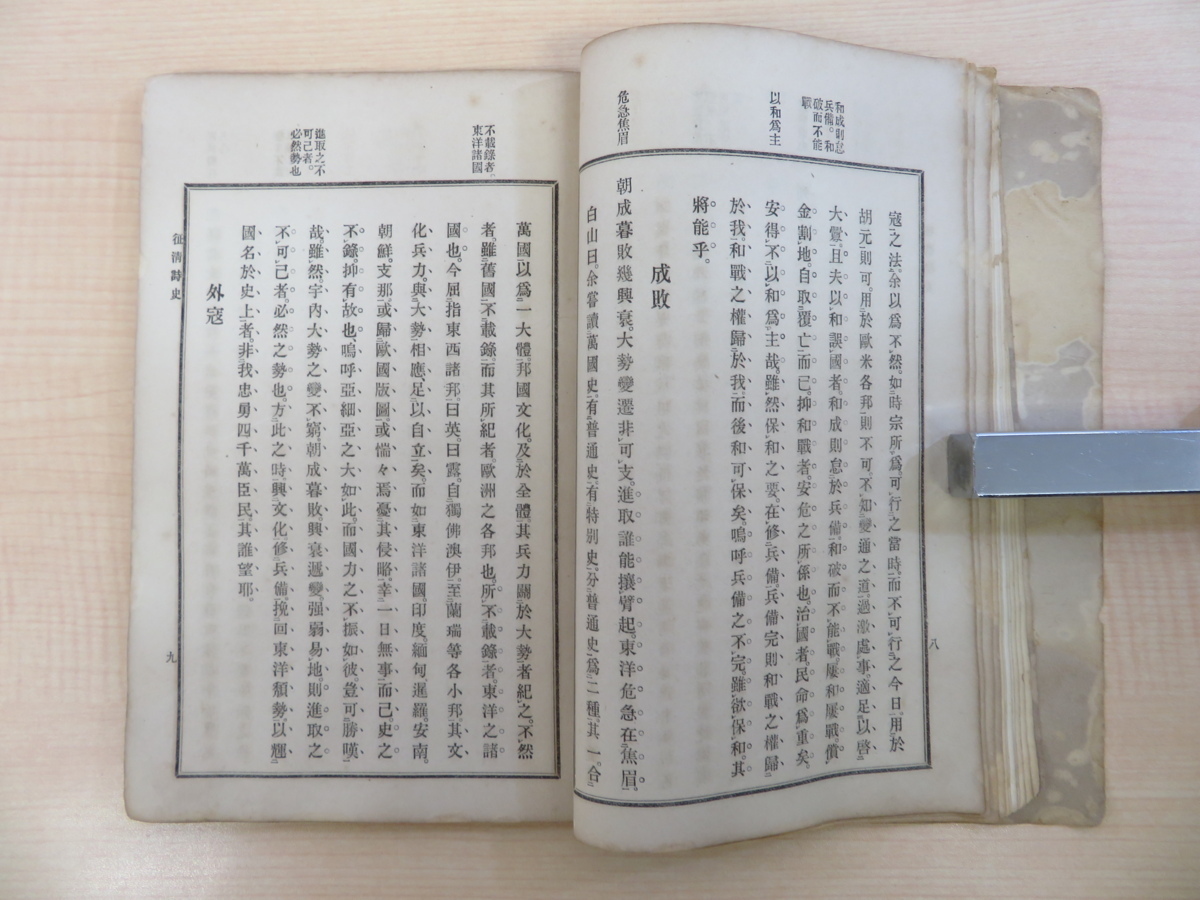 和成則怠
兵備。和
破而不能
戰
以和爲主
危急焦眉
寇之法。余以爲不然。如時宗所爲。可行之當時。而不可行之今日。用於
胡元則可。用於歐米各邦則不可不知變通之道。過激處事。適足以啓
大釁。且夫以和誤國者。和成則怠於兵備。和破而不能戰。屢和屢戰。償
金割地。自取覆亡而已。抑和戰者。安危之所係也。治國者。民命爲重矣。
安得不以和爲主哉。雖然保和之要。在修兵備。兵備完則和戰之權歸
於我。和戰之權歸於我。而後和可保矣。嗚呼兵備之不完。雖欲保和。其
將能乎。
成敗
朝成暮敗幾興衰。大勢變遷非可支。進取誰能攘臂起。東洋危急在焦眉。
白山曰。余嘗讀萬國史。有普通史。有特別史。分普通史爲二種。其一。合
八
不載錄者。
東洋諸國
進取之不
可已者。
必然勢也
萬國以爲一大體。邦國文化。及於全體。其兵力關於大勢者紀之。不然
者。雖舊國不載錄。而其所紀者。歐洲之各邦也。所不載錄者。東洋之諸
國也。今屈指東西諸邦。曰英。曰露。自獨佛澳伊。至蘭瑞等各小邦。其文
化兵力。與大勢相應。足以自立矣。而如東洋諸國。印度。緬甸。暹羅。安南。
朝鮮。支那。或歸歐國版圖。或惴々焉憂其侵略。幸一日無事而已。史之
不錄。抑有故也。嗚呼亞細亞之大如此。而國力之不振如彼。豈可勝嘆
哉。雖然。宇內大勢之變不窮。朝成暮敗。興衰遞變。强弱易地。則進取之
不可已者。必然之勢也。方此之時。興文化。修兵備。挽回東洋頹勢。以輝
國名於史上者。非我忠勇四千萬臣民。其誰望耶。
外寇
征淸詩史
九